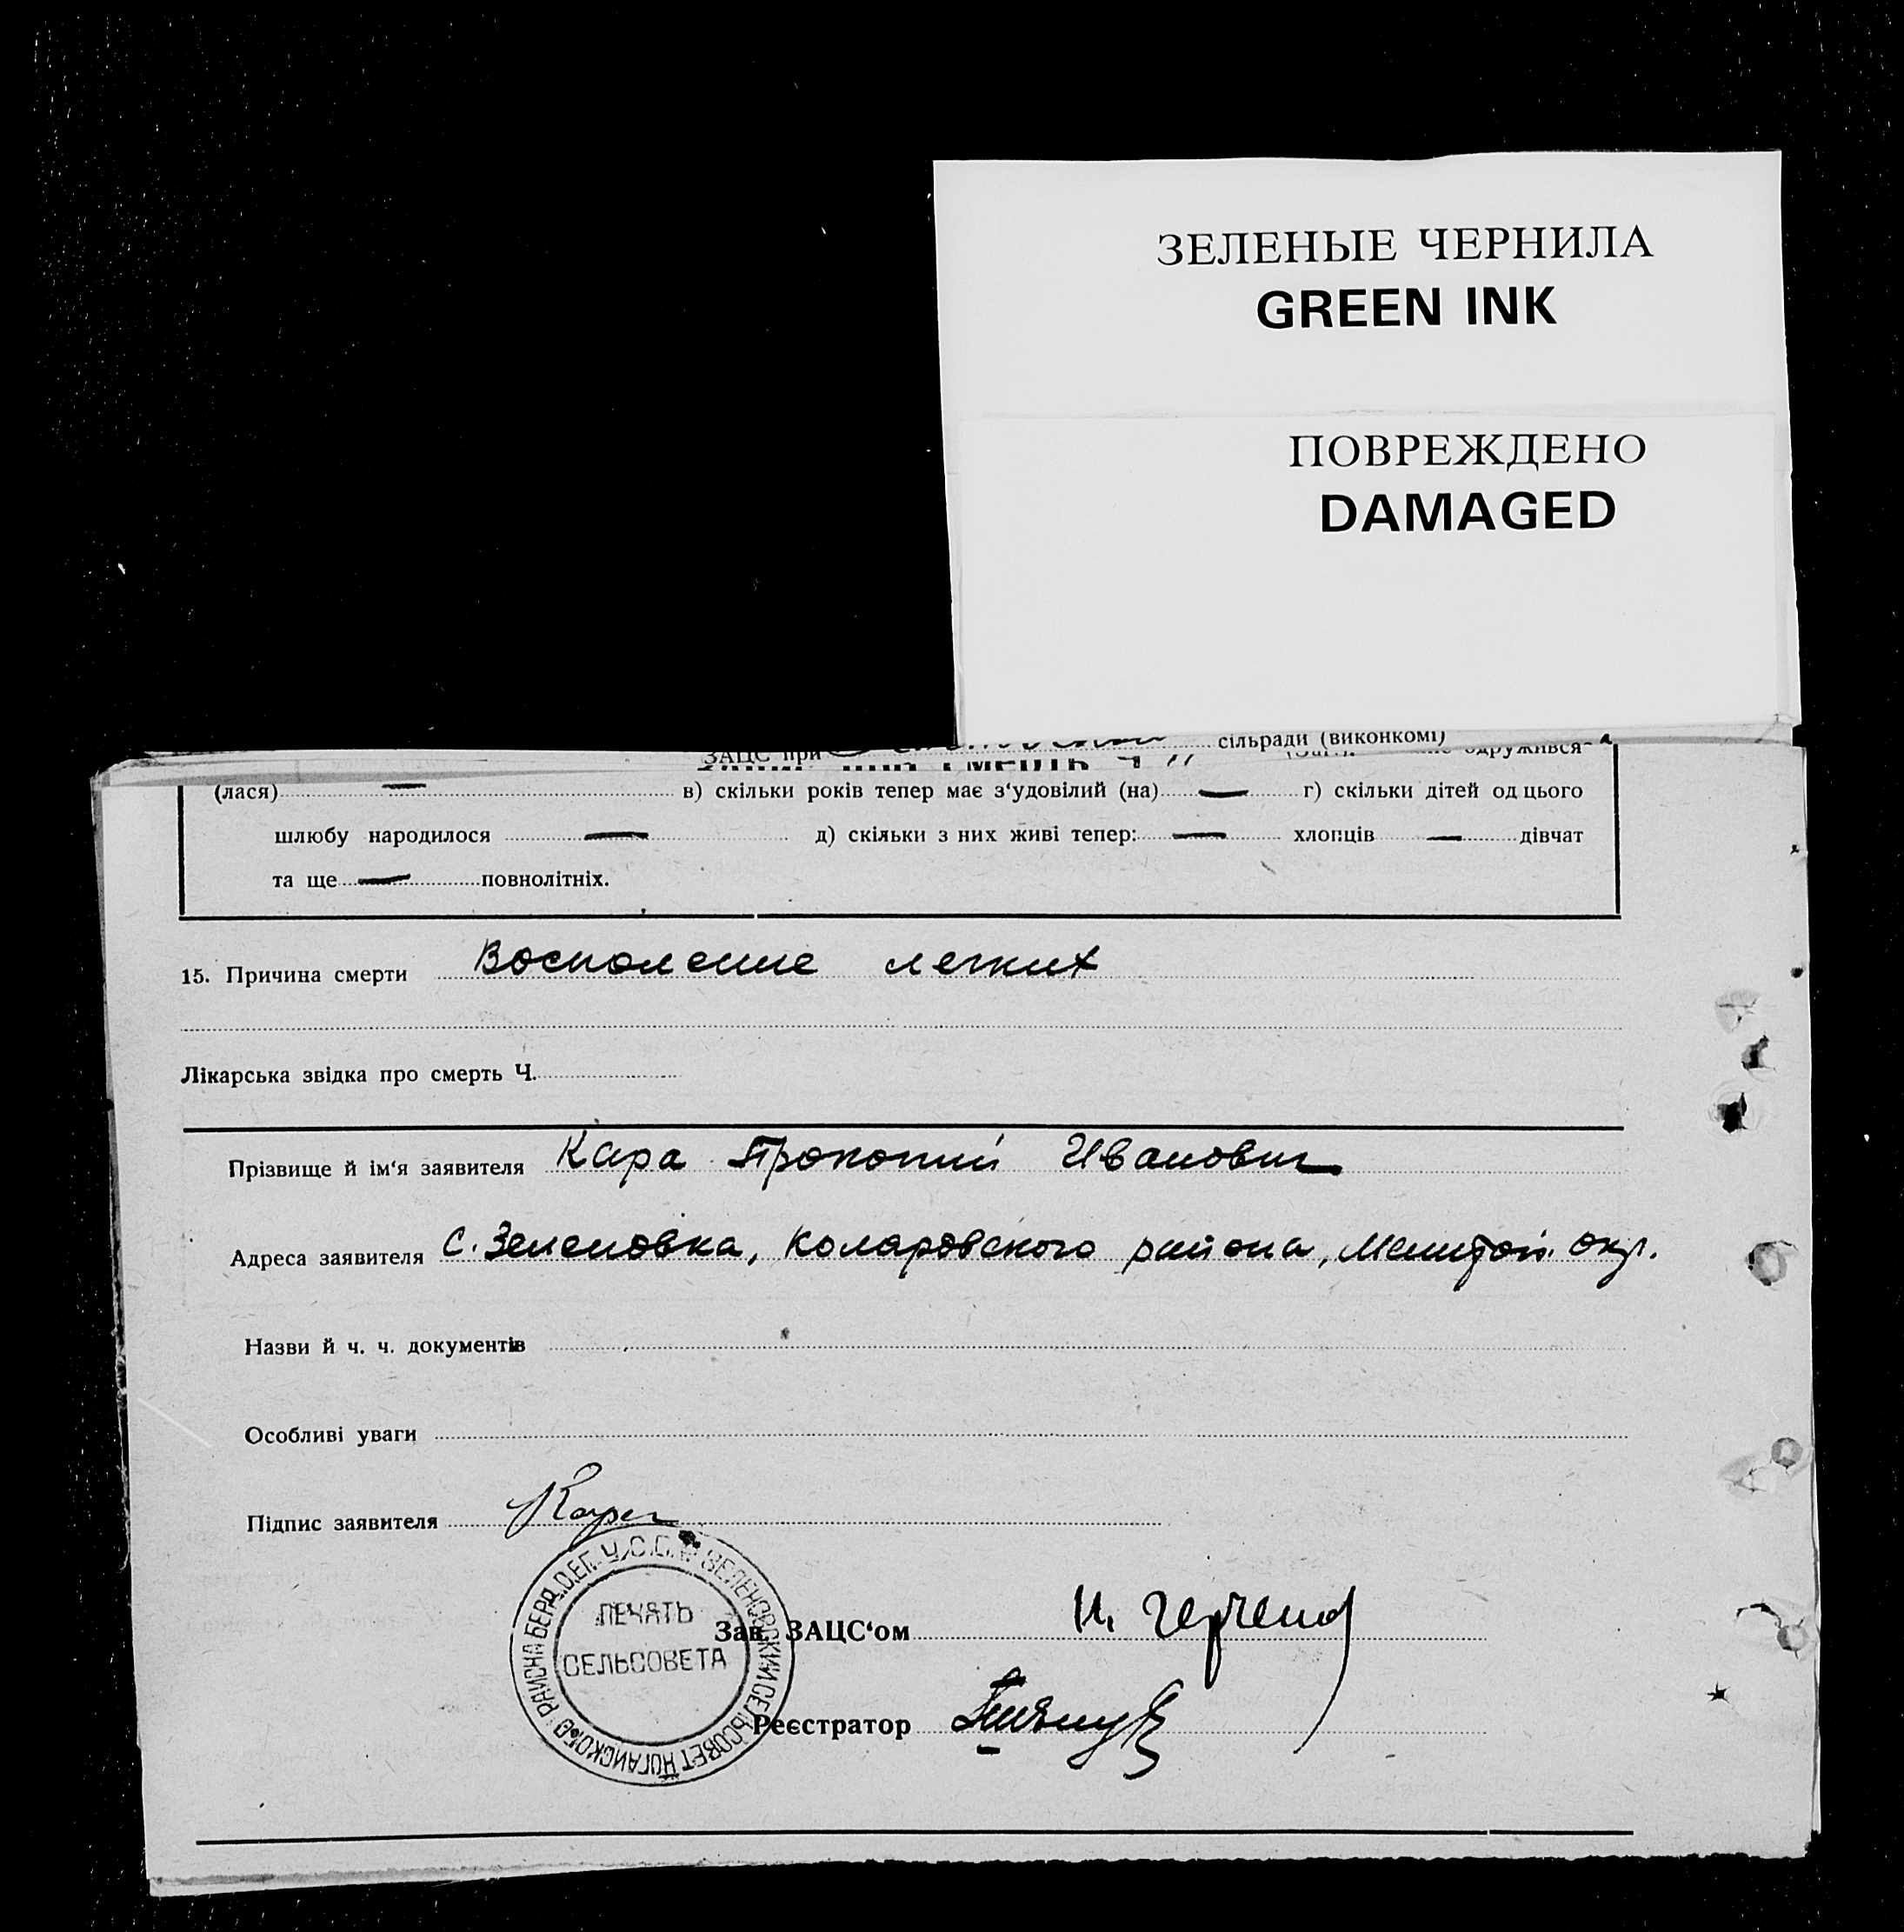 ЗЕЛЕНЫЕ ЧЕРНИЛА
GREEN INK
ПОВРЕЖДЕНО
DAMAGED
ЗАЦС при сільради (виконкомі)
одружився-
(лася) — в) скільки років тепер має з‘удовілий (на) — г) скільки дітей од цього
шлюбу народилося — д) скільки з них живі тепер: — хлопців — дівчат
та ще — повнолітніх.
15. Причина смерти Воспаление легких
Лікарська звідка про смерть Ч.
Прізвище й ім‘я заявителя Кара Прокопий Иванович
Адреса заявителя с. Зеленовка, Коларовского района, окр.
Назви й ч. ч. документів
Особливі уваги
Підпис заявителя Кара
У.С.С.Р. ЗЕЛЕНОВСКИЙ СЕЛЬСОВЕТ НОГАЙСКОГО РАЙОНА
ПЕЧАТЬ
СЕЛЬСОВЕТА
Зав. ЗАЦС‘ом
Реєстратор